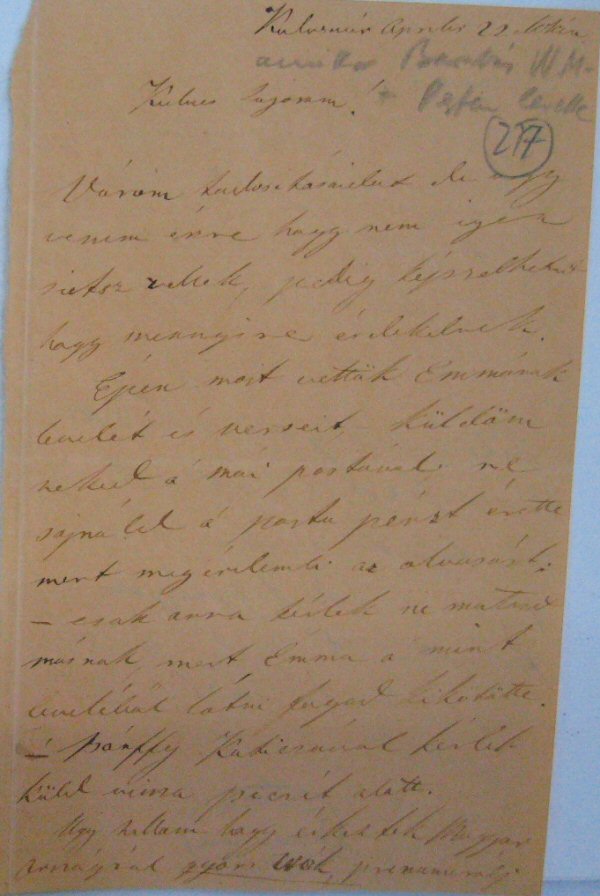 Kolozsvár April 22
Barabás
Pesten levette
Kedves húgom!
217
Várom tudósításaidat de úgy
veszem észre hogy nem igen
sietsz velek, pedig képzelheted
hogy mennyire érdekelnek.
Épen most vettük Emmának
levelét és verseit küldöm
neked á mái postával; ne
sajnáld á posta pénzt érette
mert megérdemli az olvasást.
– csak arra kérlek ne mutasd
másnak mert Emma á mint
levelébol látni fogod kikötötte.
– Bánffy Katicsával kérlek
küld vissza pecsét alatt.
Úgy hallom hogy érkeztek Magyar
országról